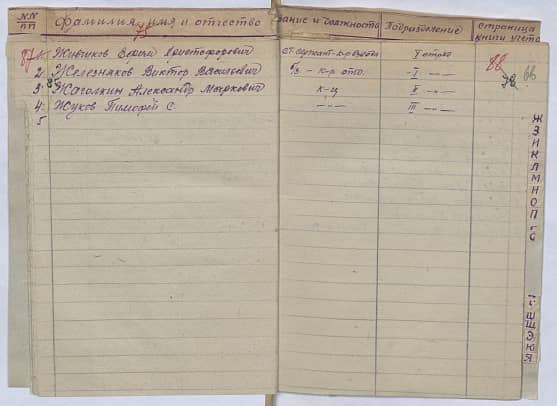 NN пп Фамилия, имя и отчество звание и должность Подразделение Страница книги учета
75
87 1. Живчиков Христофорович ст. сержант 88 66
2. Железняков Виктор Васильевич к-р отд. I —"—
3. Жаголкин Александр Маркович к-ц II —"—
4. Жуков Тимофей С. —"— III —"—
5
Ж
З
И
К
Л
М
Н
О
П
С
Ш
Щ
Э
Ю
Я